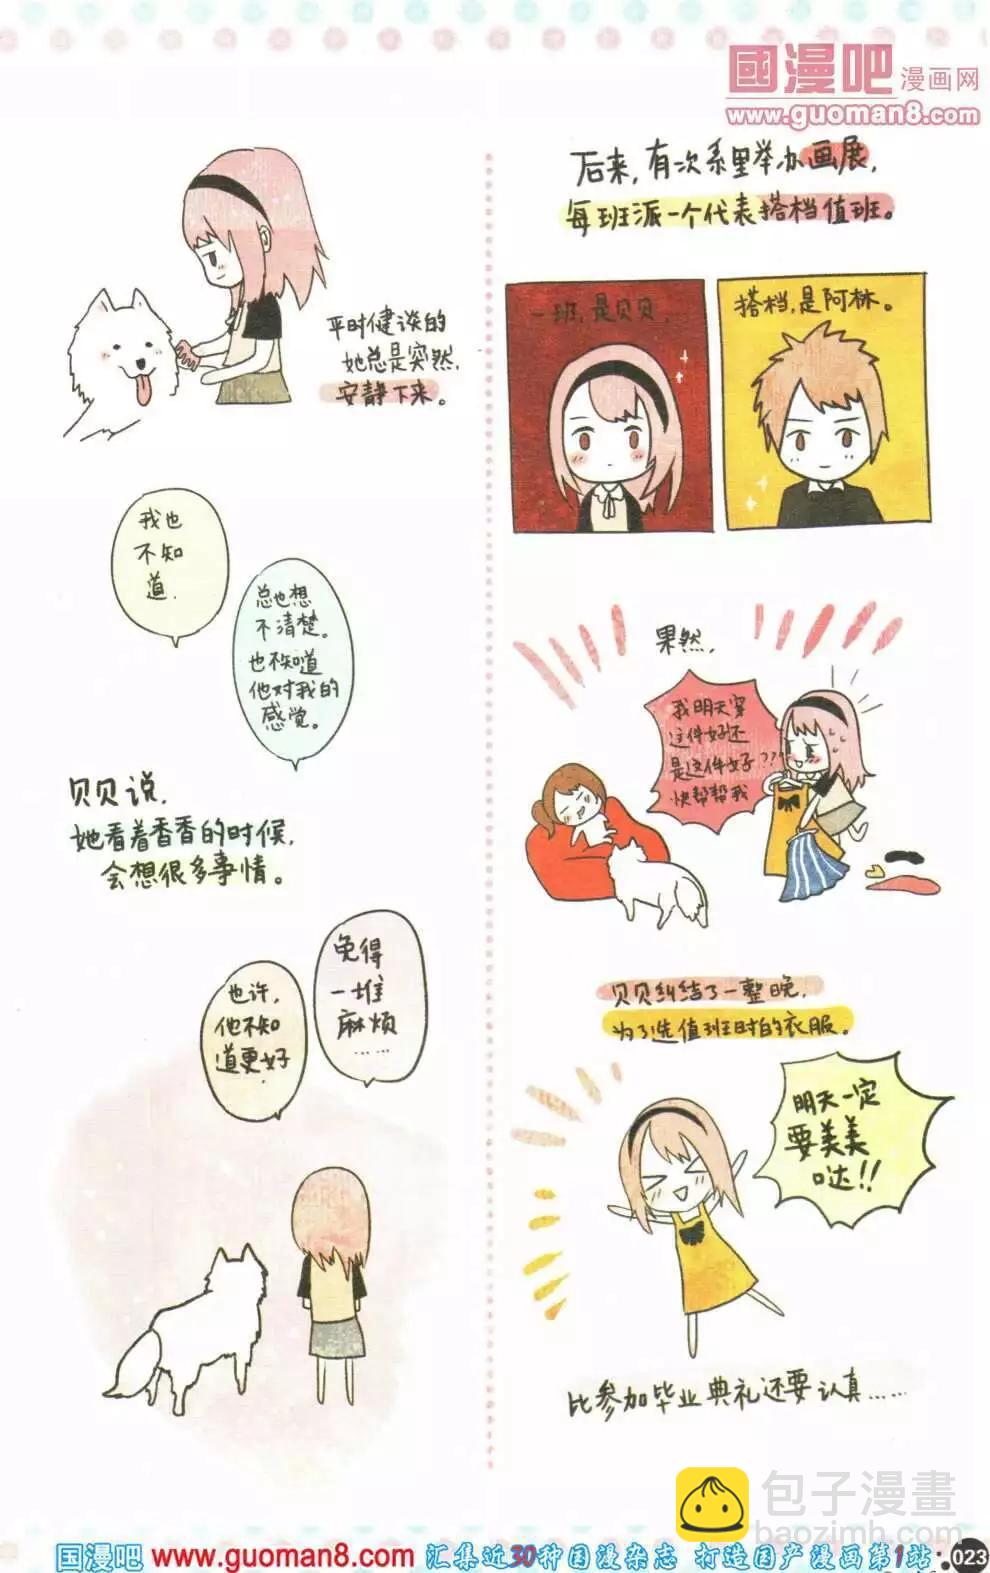 國漫吧 漫画网
www.guoman8.com
平时健谈的
她总是突然,
安静下来。
我也
不知
道.
总也想
不清楚。
也不知道
他对我的
感觉。
贝贝说,
她看着香香的时候,
会想很多事情。
免得
一堆
麻烦
……
也许,
他不知
道更好
后来,有次系里举办画展,
每班派一个代表搭档值班。
一班,是贝贝,
搭档,是阿林。
果然,
我明天穿
这件好还
是这件好???
快帮帮我
贝贝纠结了一整晚,
为了选值班时的衣服。
明天一定
要美美
哒!!
比参加毕业典礼还要认真……
包子漫畫
baozimh.com
国漫吧 www.guoman8.com 汇集近30种国漫杂志 打造国产漫画第1站
023